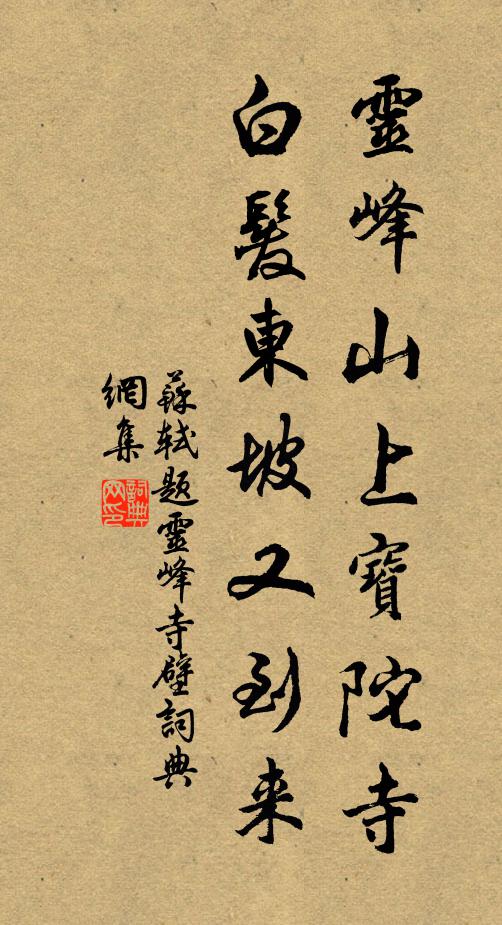 靈峰山上寶陀寺
白髮東坡又到来
蘇軾题靈峰寺壁詞典
網集
詞典
网印